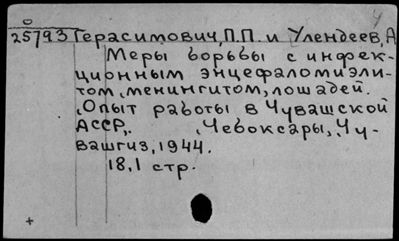 25793 Герасимович, П.П. и Улендеев, А
Меры борьбы с инфек-
ционным энцефаломиэли-
том, менингитом, лошадей.
„Опыт работы в Чувашской
АССР„. , Чебоксары, Чу-
вашгиз, 1944.
18,1 стр.